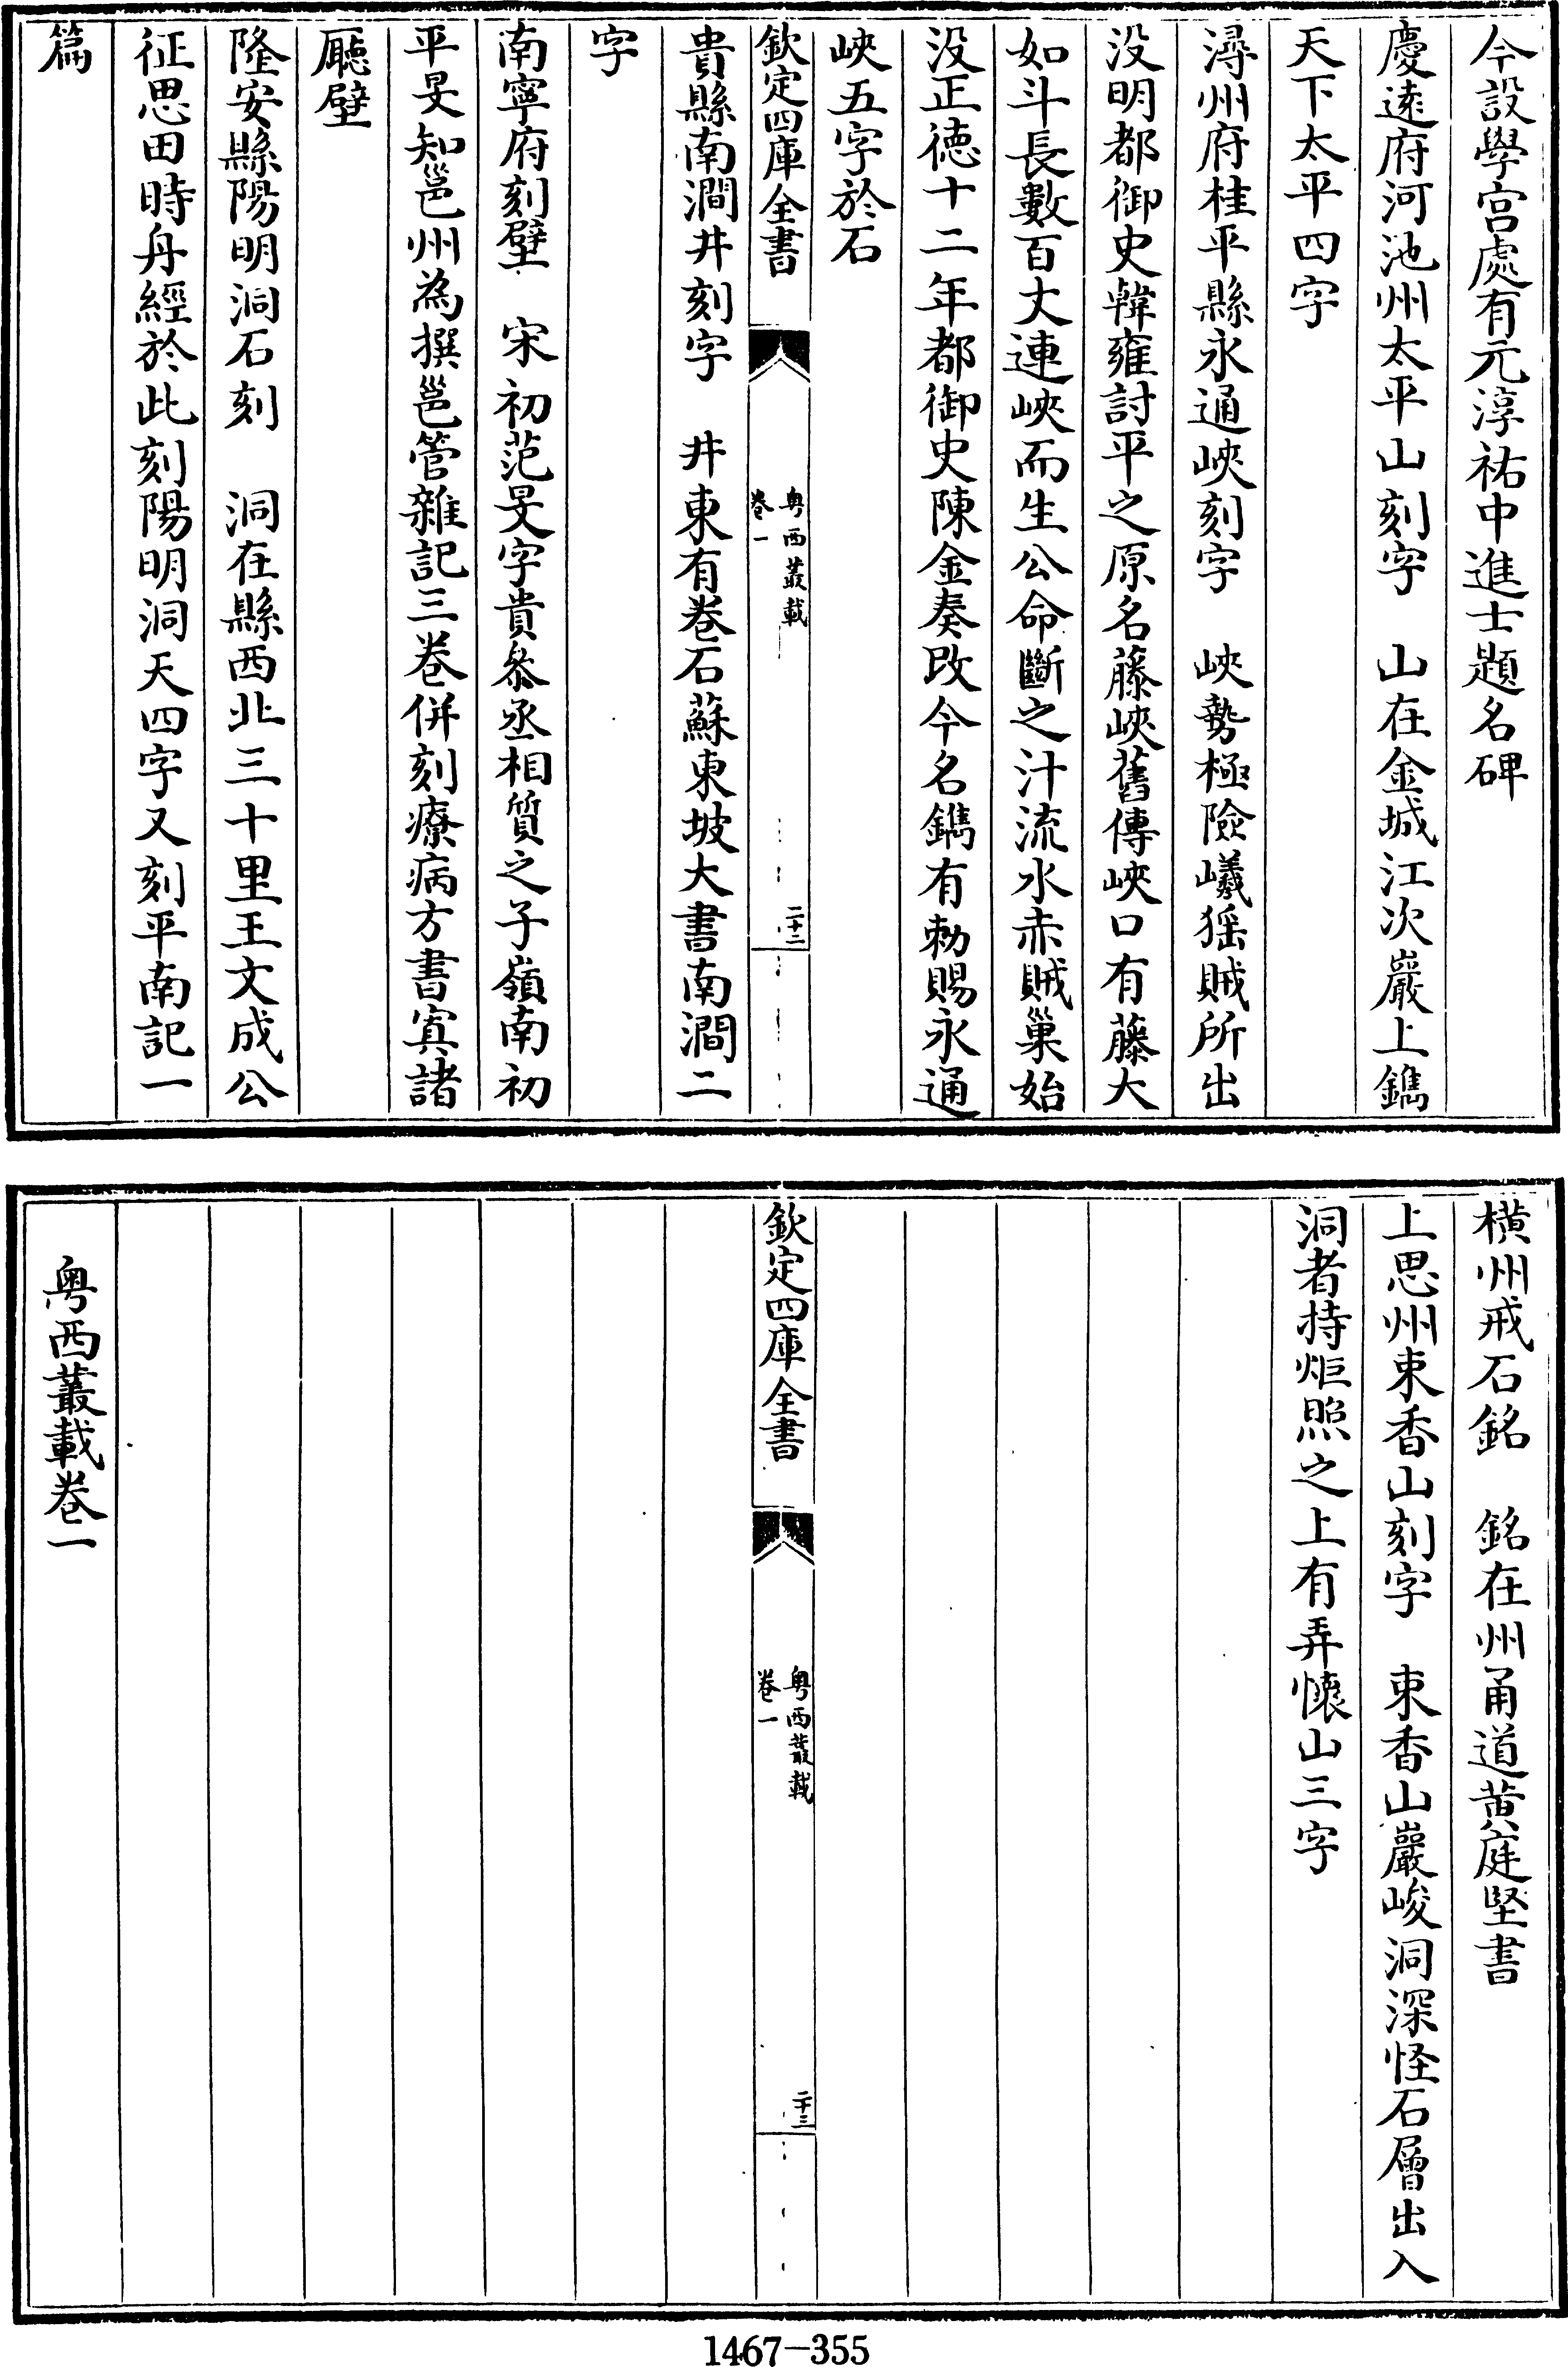 今設學宫處有元淳祐中進士題名碑
慶逺府河池州太平山刻字　山在金城江次巖上鐫
天下太平四字
潯州府桂平縣永通峽刻字　峽勢極險巇猺賊所出
没明都御史韓雍討平之原名藤峽舊傳峽口有藤大
如斗長數百丈連峽而生公命斷之汁流水赤賊巢始
没正徳十二年都御史陳金奏改今名鐫有勅賜永通
峽五字於石
欽定四庫全書
粤西叢載
卷一
二十二
貴縣南澗井刻字　井東有巻石蘇東坡大書南澗二
字
南寧府刻壁　宋初范旻字貴叅丞相質之子嶺南初
平旻知邕州為撰邕管雜記三巻併刻療病方書寘諸
廳壁
隆安縣陽明洞石刻　洞在縣西北三十里王文成公
征思田時舟經於此刻陽明洞天四字又刻平南記一
篇
横州戒石銘　銘在州甬道黄庭堅書
上思州東香山刻字　東香山巖峻洞深怪石層出入
洞者持炬照之上有弄懐山三字
欽定四庫全書
粤西叢載
卷一
二十三
粤西叢載卷一
1467-355